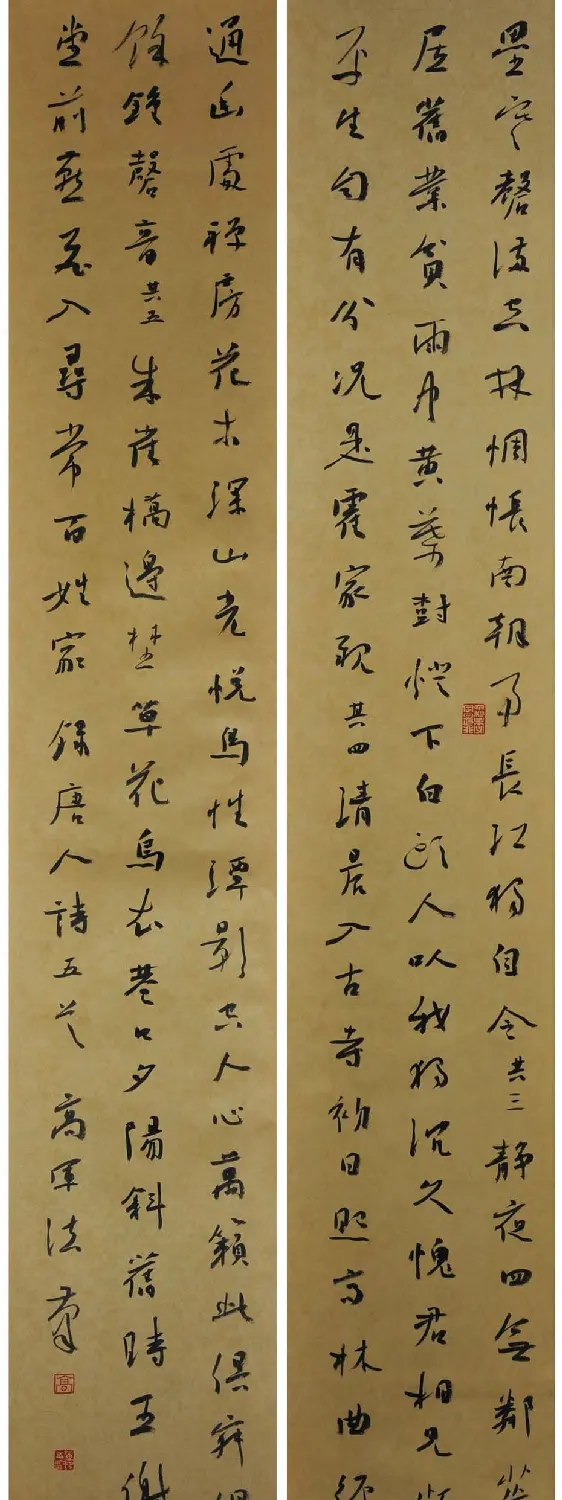 壘寒磬滿空林惆悵南朝事長江獨自今其三靜夜四無鄰荒
居舊業貧雨中黃葉樹燈下白頭人以我獨沉久愧君相見頻
平生自有分況是霍家親其四清晨入古寺初日照高林曲徑
通幽處禪房花木深山光悅鳥性潭影空人心萬籟此俱寂但
餘鐘磬音其五朱雀橋邊埜草花烏衣巷口夕陽斜舊時王謝
堂前燕飛入尋常百姓家錄唐人詩五首高軍法